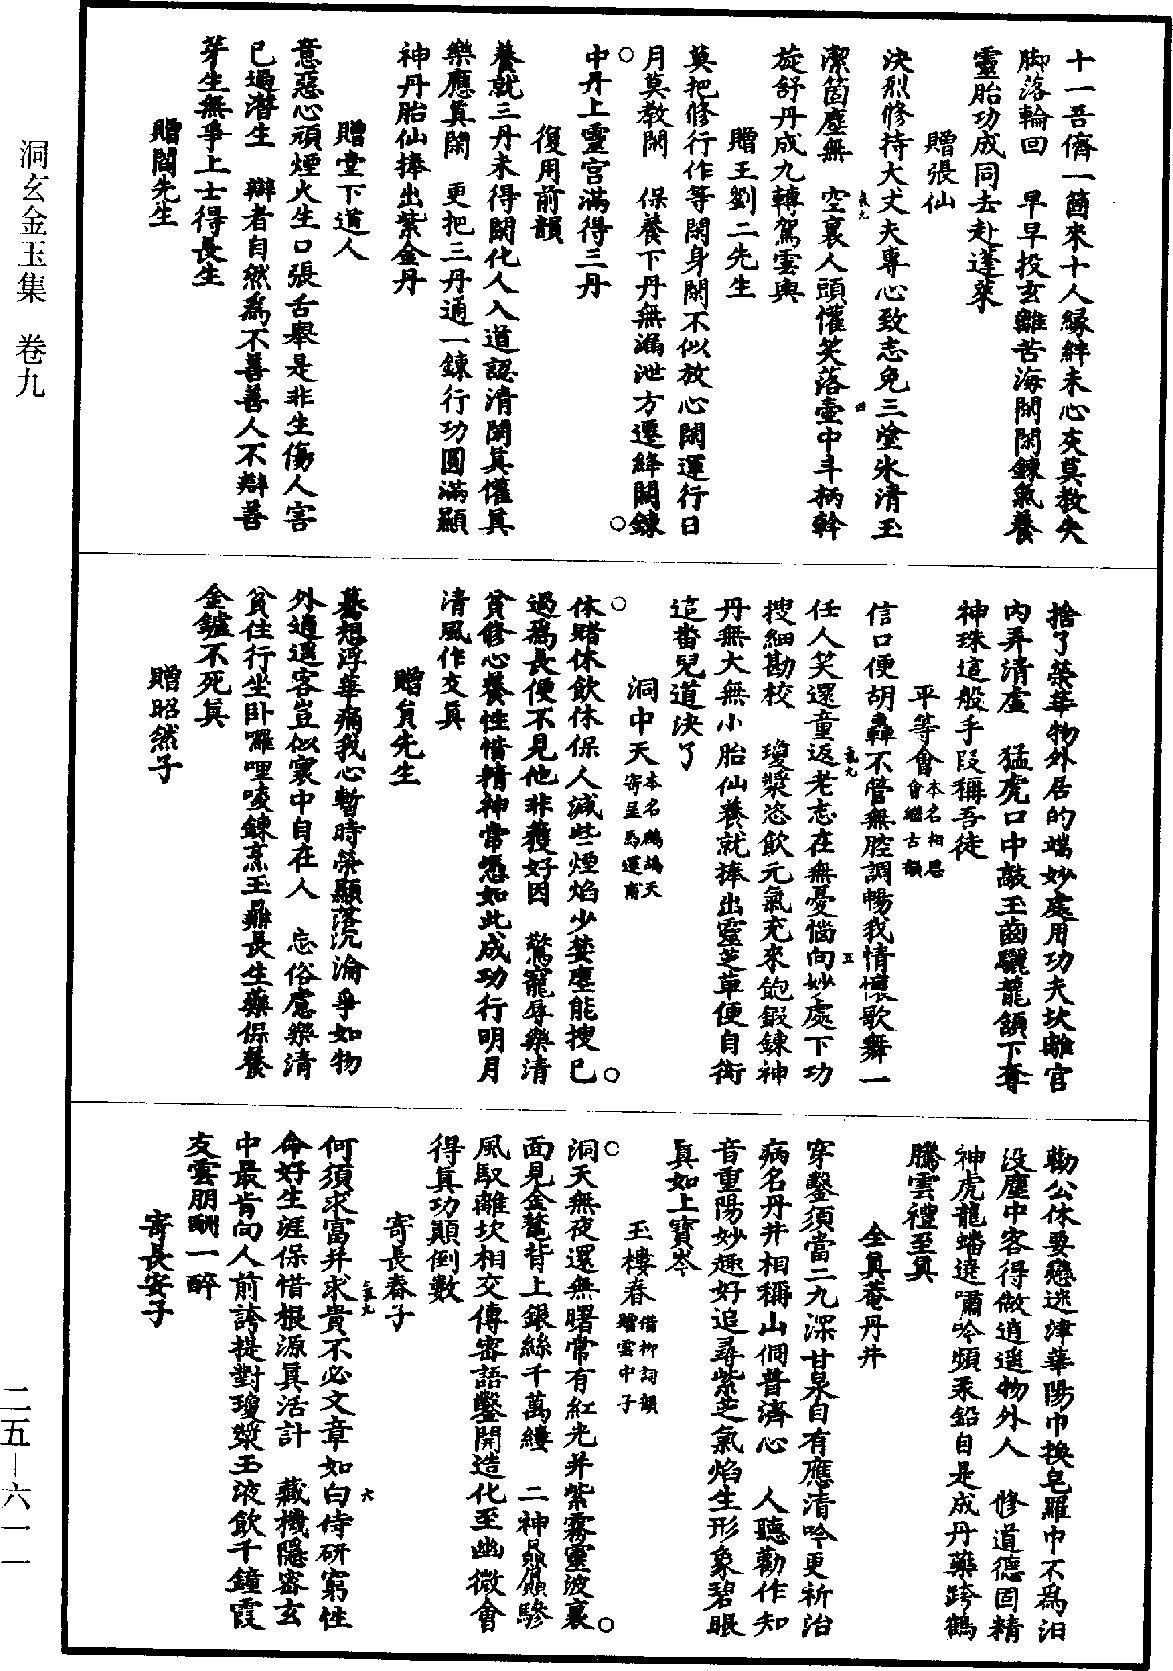 洞玄金玉集　卷九
二五—六一一
十一吾儕一箇來十人緣絆未心灰莫教失
脚落輪回　早早投玄離苦海閑閑鍊氣養
靈胎功成同去赴蓬萊
贈張仙
決烈修持大丈夫專心致志免三塗氷清玉
潔箇塵無　空裏人頭懽笑落壺中斗柄斡
旋舒丹成九轉駕雲輿
贈王劉二先生
莫把修行作等閑身閑不似放心閑運行日
月莫教閑　保養下丹無漏泄方還絳闕鍊
中丹上靈宮滿得三丹
復用前韻
養就三丹未得閑化人入道認清閑眞懽眞
樂應眞閑　更把三丹通一鍊行功圓滿顯
神丹胎仙捧出紫金丹
贈堂下道人
意惡心頑煙火生口張舌舉是非生傷人害
已過潛生　辯者自然爲不善善人不辯善
芽生無爭上士得長生
贈閻先生
捨了榮華物外居的端妙處用功夫坎離宮
內弄清虛　猛虎口中敲玉齒驪龍頷下奪
神珠這般手段稱吾徒
平等會本名相思會繼古韻
信口便胡轟不管無腔調暢我情懷歌舞一
任人笑還童返老志在無憂惱向妙處下功
搜細勘校　瓊漿恣飲元氣充來飽鍛鍊神
丹無大無小胎仙養就捧出靈芝草便自衒
這畨兒道決了
洞中天本名鷓鴣天寄呈馬運甫
休賭休飲休保人減些煙焰少婪塵能搜已
過爲長便不見他非獲好因　驚寵辱樂清
貧修心養性惜精神常憑如此成功行明月
清風作交眞
贈負先生
募想浮華痛我心暫時榮顯落沉淪爭如物
外逍遥客豈似寰中自在人　忘俗慮樂清
貧住行坐卧囉哩唛鍊烹玉鼎長生藥保養
金鑪不死眞
贈昭然子
勸公休要戀迷津華陽巾換皂羅巾不爲汩
没塵中客得做逍遥物外人　修道德固精
神虎龍蟠遶嘯吟頻汞鉛自是成丹藥跨鶴
騰雲禮至眞
全眞菴丹井
穿鑿須當二九深甘泉自有應清吟更祈治
病名丹井相稱山侗普濟心　人聽勸作知
音重陽妙趣好追尋紫芝氣焰生形象碧眼
眞如上寶岑
玉樓春借柳詞韻贈雲中子
洞天無夜還無曙常有紅光并紫霧靈波裏
面見金鼇背上銀絲千萬縷　二神贔屭驂
風馭離坎相交傳密語鑿開造化至幽微會
得眞功顚倒數
寄長春子
何須求富并求貴不必文章如白侍研窮性
命好生涯保惜根源眞活計　藏機隱密玄
中最肯向人前誇掟對瓊漿玉液飲千鍾霞
友雲朋酬一醉
寄長安子